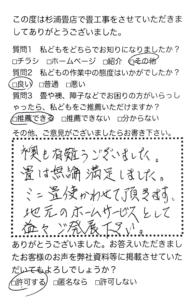 この度は杉浦畳店で畳工事をさせていただきま
してありがとうございました。
質問1 私どもをどちらでお知りになりましたか？
□チラシ □ホームページ □紹介 □その他
質問2 私どもの作業中の態度はいかがでしたか？
□良い □普通 □悪い
質問3 畳や襖、障子などでお困りの方がいらっし
ゃったら、私どもをご推薦いただけますか？
□推薦できる □推薦できない □分からない
その他、ご意見がございましたらお書き下さい。
襖も有難うございました。
畳は無論満足しました。
ミニ畳使かわせて頂きます、
地元のホームサービスとして
益々ご発展下さい。
ありがとうございました。お答えいただきまし
たお客様のお声を弊社資料等に掲載させていた
だいてもよろしでしょうか？
□許可する □匿名なら □許可しない